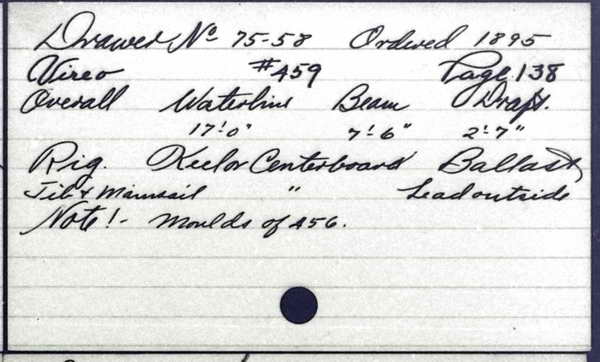 Drawer No 75-58 Ordered 1895
Vireo #459 Page 138
Overall Waterline Beam Draft.
17'.0" 7'-6" 2'-7"
Rig. Keel or Centerboard Ballast
Jib & Mainsail " Lead outside
Note!- Moulds of 456.